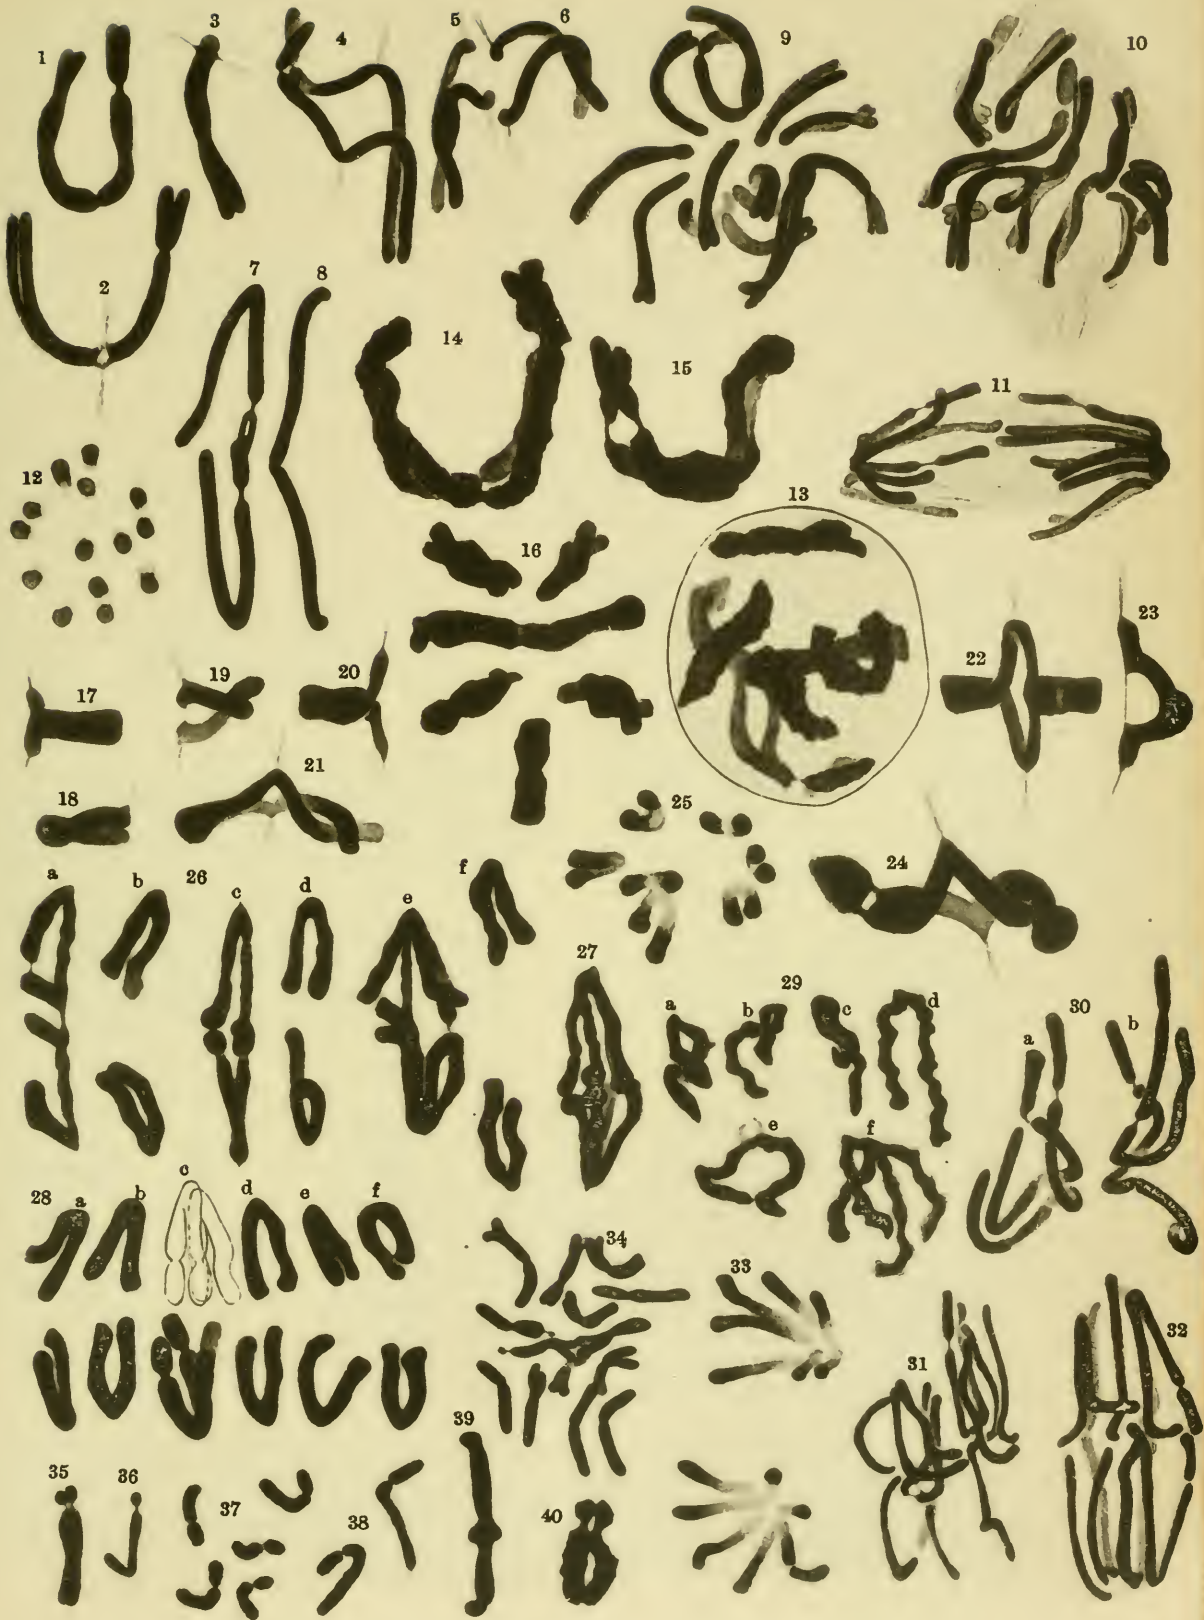 1 3 4 5 6 9 10
2 7 8
14 15 11
12 13
16
17 19 20 22 23
18 21 25 24
a b 26 c d e f
27 29 a b c d 30 a b
e f
28 a b c d e f
34 33 31 32
35 36 37 38 39 40